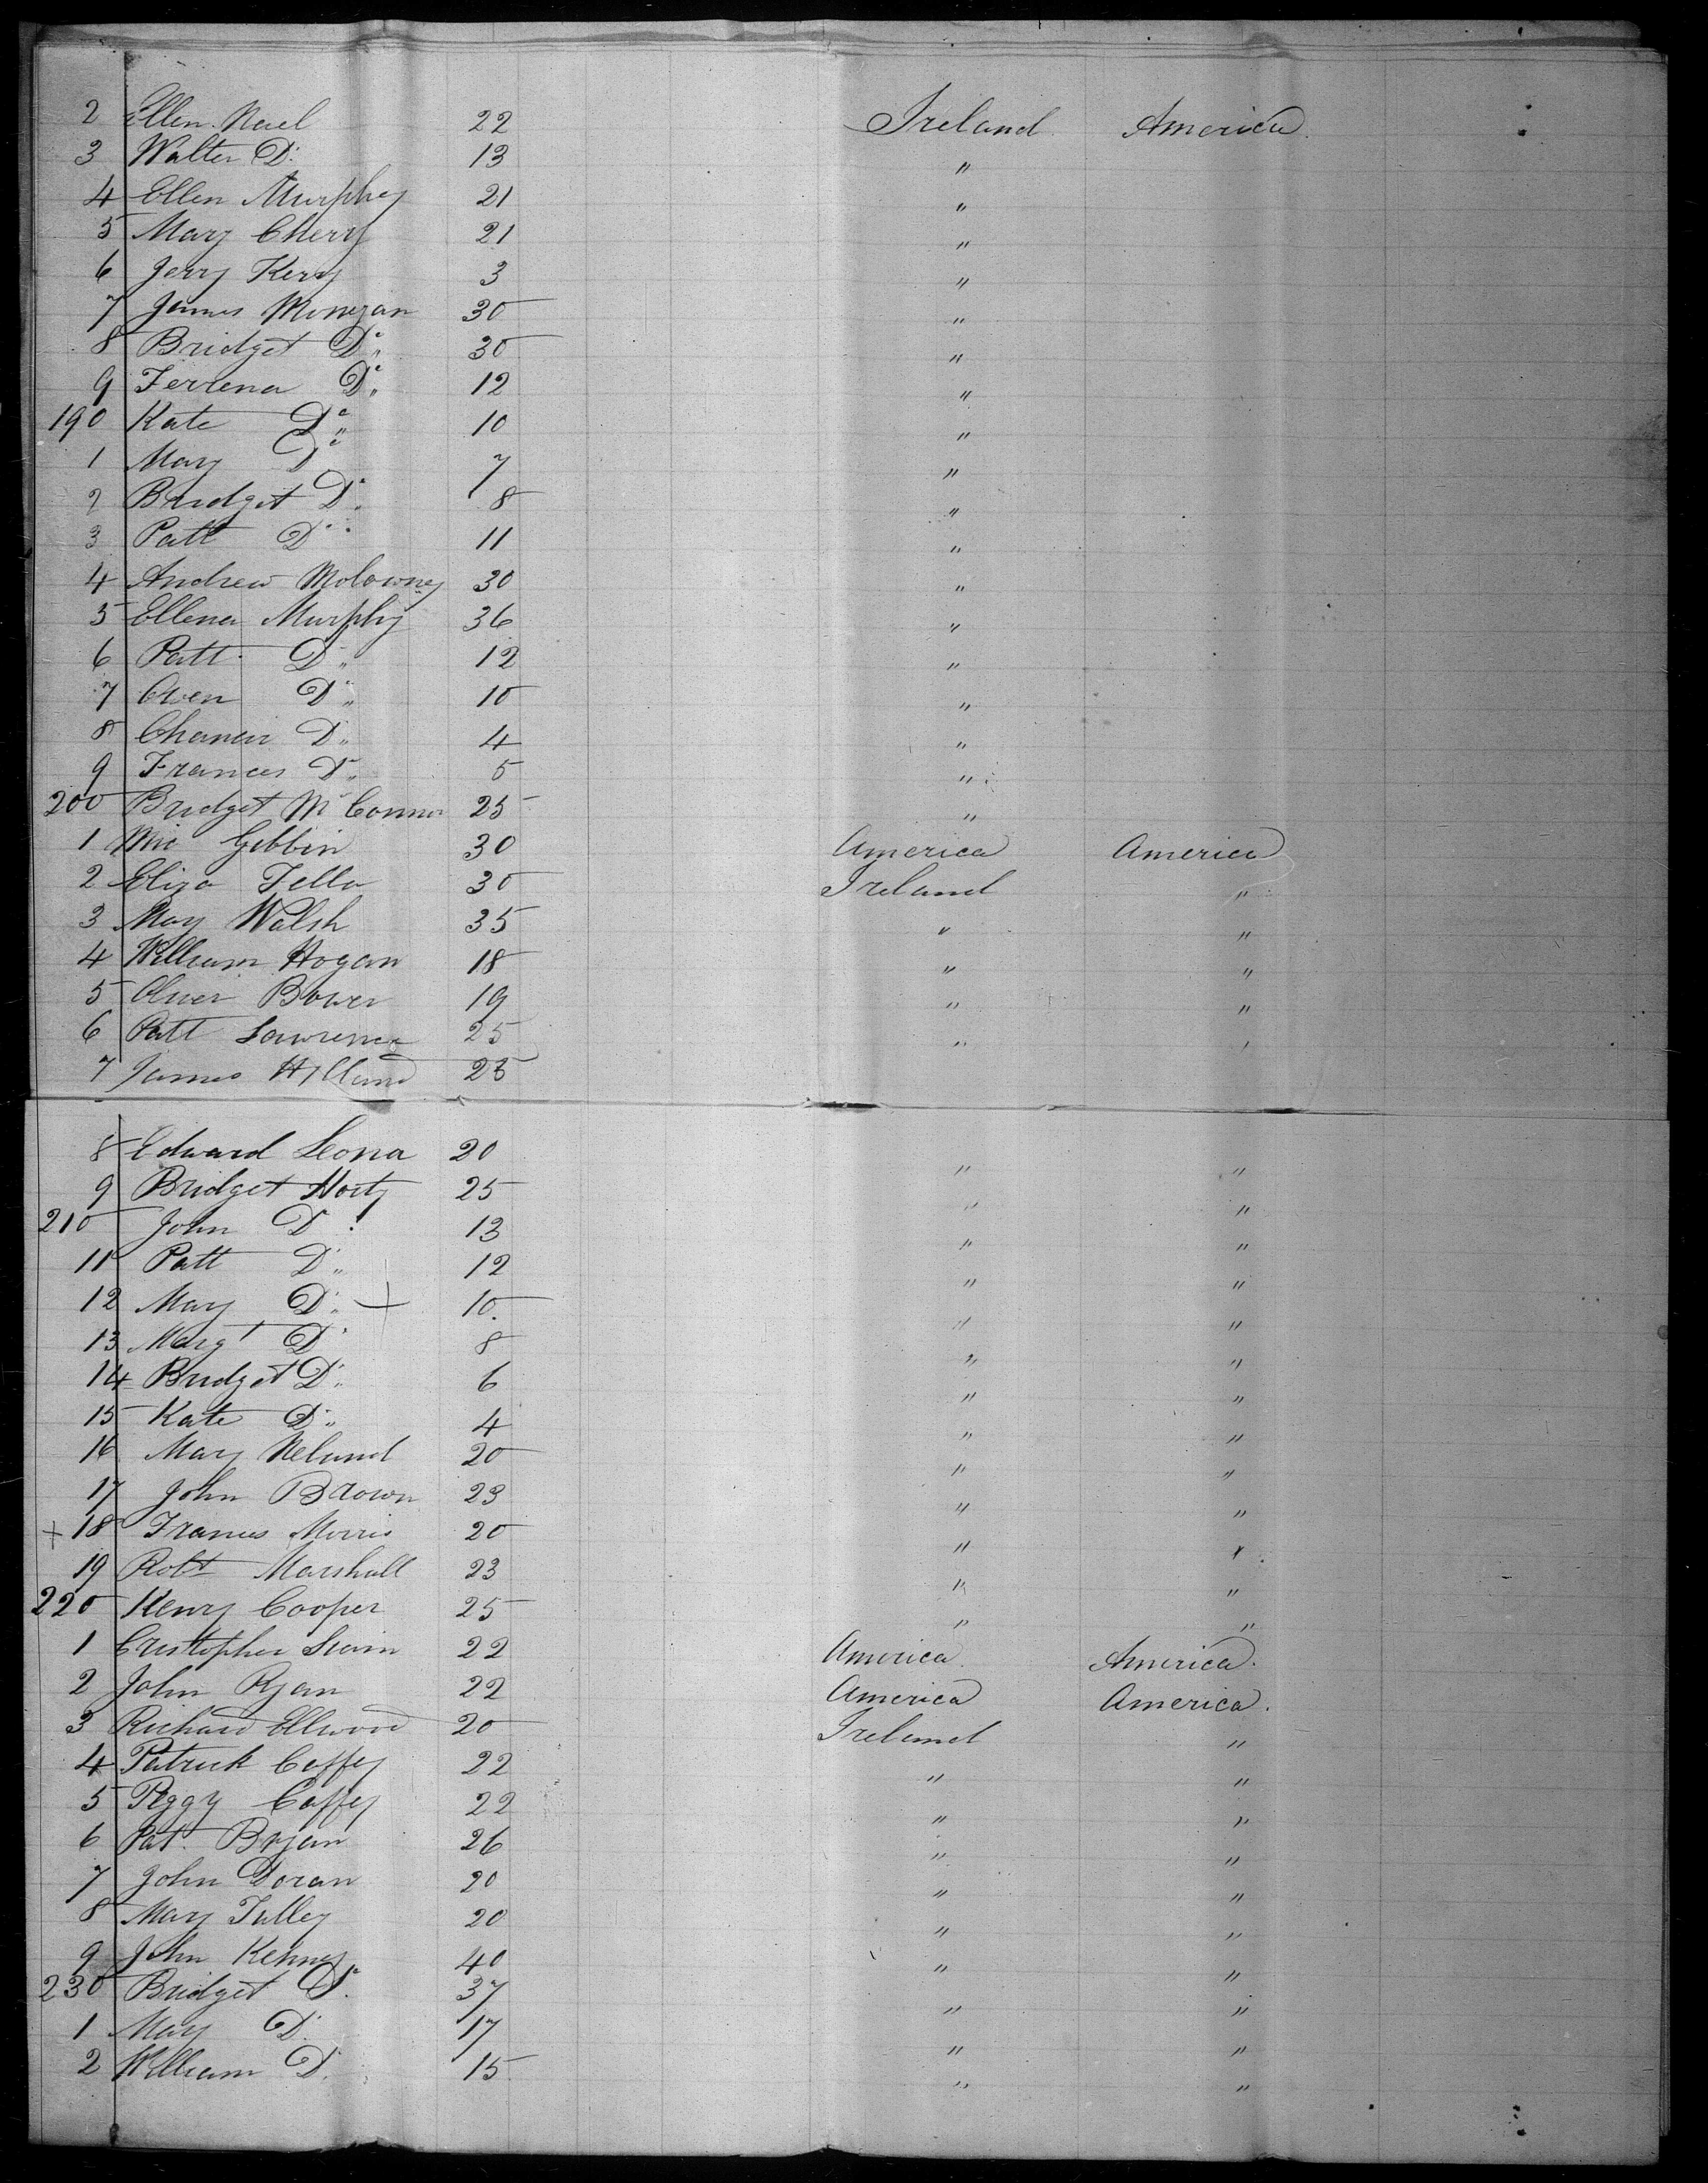 2 Ellen Nael 22 Ireland America
3 Walter Do 13 "
4 Ellen Murphey 21 "
5 Mary Cherry 21 "
6 Jerry Kerry 3 "
7 James Monegan 30 "
8 Bridget Do 30 "
9 Ferrena Do 12 "
190 Kate Do 10 "
1 Mary Do 7 "
2 Bridget Do 8 "
3 Patt Do 11 "
4 Andrew Molowney 30 "
5 Ellena Murphy 36 "
6 Patt Do 12 "
7 Owen Do 10 "
8 Do 4 "
9 Frances Do 5 "
200 Bridget Mc Connor 25 "
1 Mic Gibbin 30 America America
2 Eliza Fella 30 Ireland "
3 May Walsh 35 " "
4 William Hogan 18 " "
5 Oliver Bower 19 " "
6 Patt Lawrence 25 " "
7 James Hylland 25
8 Edward Leona 20 " "
9 Bridget Hoity 25 " "
210 John Do 13 " "
11 Patt Do 12 " "
12 Mary Do + 10 " "
13 Margt Do 8 " "
14 Bridget Do 6 " "
15 Kate Do 4 " "
16 Mary Neland 20 " "
17 John Brown 23 " "
+ 18 Frances Morris 20 " "
19 Robt Marshall 23 " "
220 Henry Cooper 25 " "
1 Cristopher 22 America America
2 John Ryan 22 America America
3 Richard Ellwood 20 Ireland "
4 Patrick Caffey 22 " "
5 Peggy Caffey 22 " "
6 Pat Bryan 26 " "
7 John Doran 20 " "
8 Mary Tulley 20 " "
9 John Kehney 40 " "
230 Bridget Do 37 " "
1 May Do 17 " "
2 William Do 15 " "